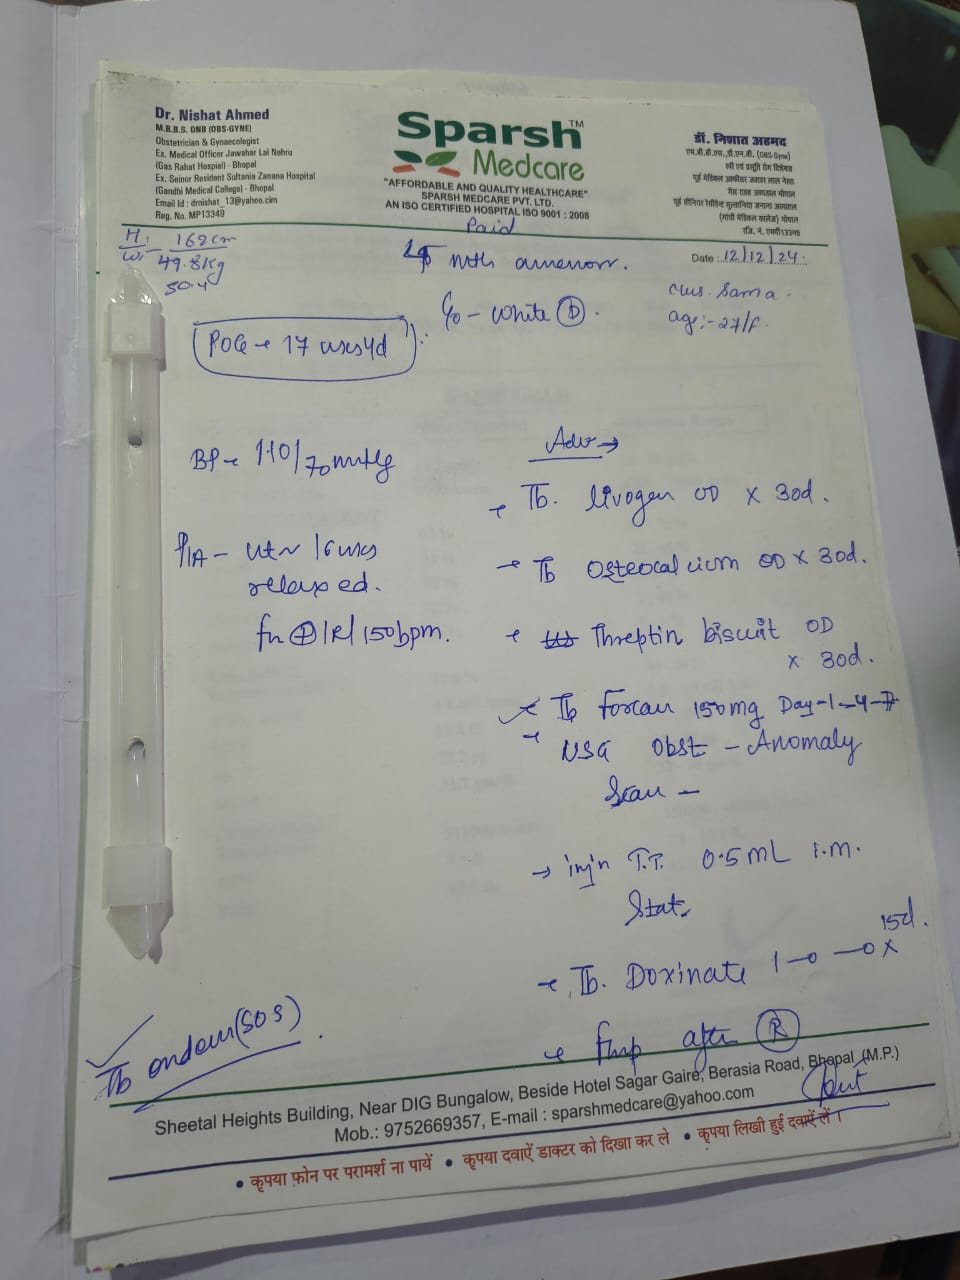 Dr. Nishat Ahmed
M.B.B.S. DNB (OBS-GYNE)
Obstetrician & Gynaecologist
Ex. Medical Officer Jawahar Lal Nehru
(Gas Rahat Hospial) - Bhopal
Ex. Seinor Resident Sultania Zanana Hospital
(Gandhi Medical College) - Bhopal
Email Id : drnishat_13@yahoo.cim
Reg. No. MP13349
Sparsh TM
Medcare
"AFFORDABLE AND QUALITY HEALTHCARE"
SPARSH MEDCARE PVT. LTD.
AN ISO CERTIFIED HOSPITAL ISO 9001 : 2008
डॉ. निशात अहमद
एम.बी.बी.एस.,डी.एन.बी. (OBS-Gyne)
स्त्री एवं प्रसूति रोग विशेषज्ञ
पूर्व मेडिकल आफीसर जवाहर लाल नेहरु
गैस राहत अस्पताल भोपाल
पूर्व सीनियर रेसीडेन्ट सुल्तानिया जनाना अस्पताल
(गांधी मेडिकल कालेज) भोपाल
रजि. नं. एमपी13349
Paid
Date : 12/12/24
H. 162cm
Wt 49.8kg
50.4
mth amenorr.
Mrs. Sama
age:- 27/F.
C/o - white D.
POG → 17 wks 4d
BP → 110/70 mmHg
P/A - utr 16 wks
relaxed.
FH + /R/ 150 bpm.
Adv →
→ Tb. livogen OD x 30d.
→ Tb Osteocalcium OD x 30d.
→ Threptin biscuit OD
x 30d.
→ Tb Forcan 150mg Day-1-4-7
→ USG Obst - Anomaly
Scan -
→ injn T.T. 0.5 mL i.m.
Stat.
→ Tb. Doxinate 1-0-0 x 15d.
→ after R
Tb ondem (SOS).
Sheetal Heights Building, Near DIG Bungalow, Beside Hotel Sagar Gaire, Berasia Road, Bhopal (M.P.)
Mob.: 9752669357, E-mail : sparshmedcare@yahoo.com
• कृपया फ़ोन पर परामर्श ना पायें • कृपया दवाऐं डाक्टर को दिखा कर ले • कृपया लिखी हुई दवाऐं लें ।